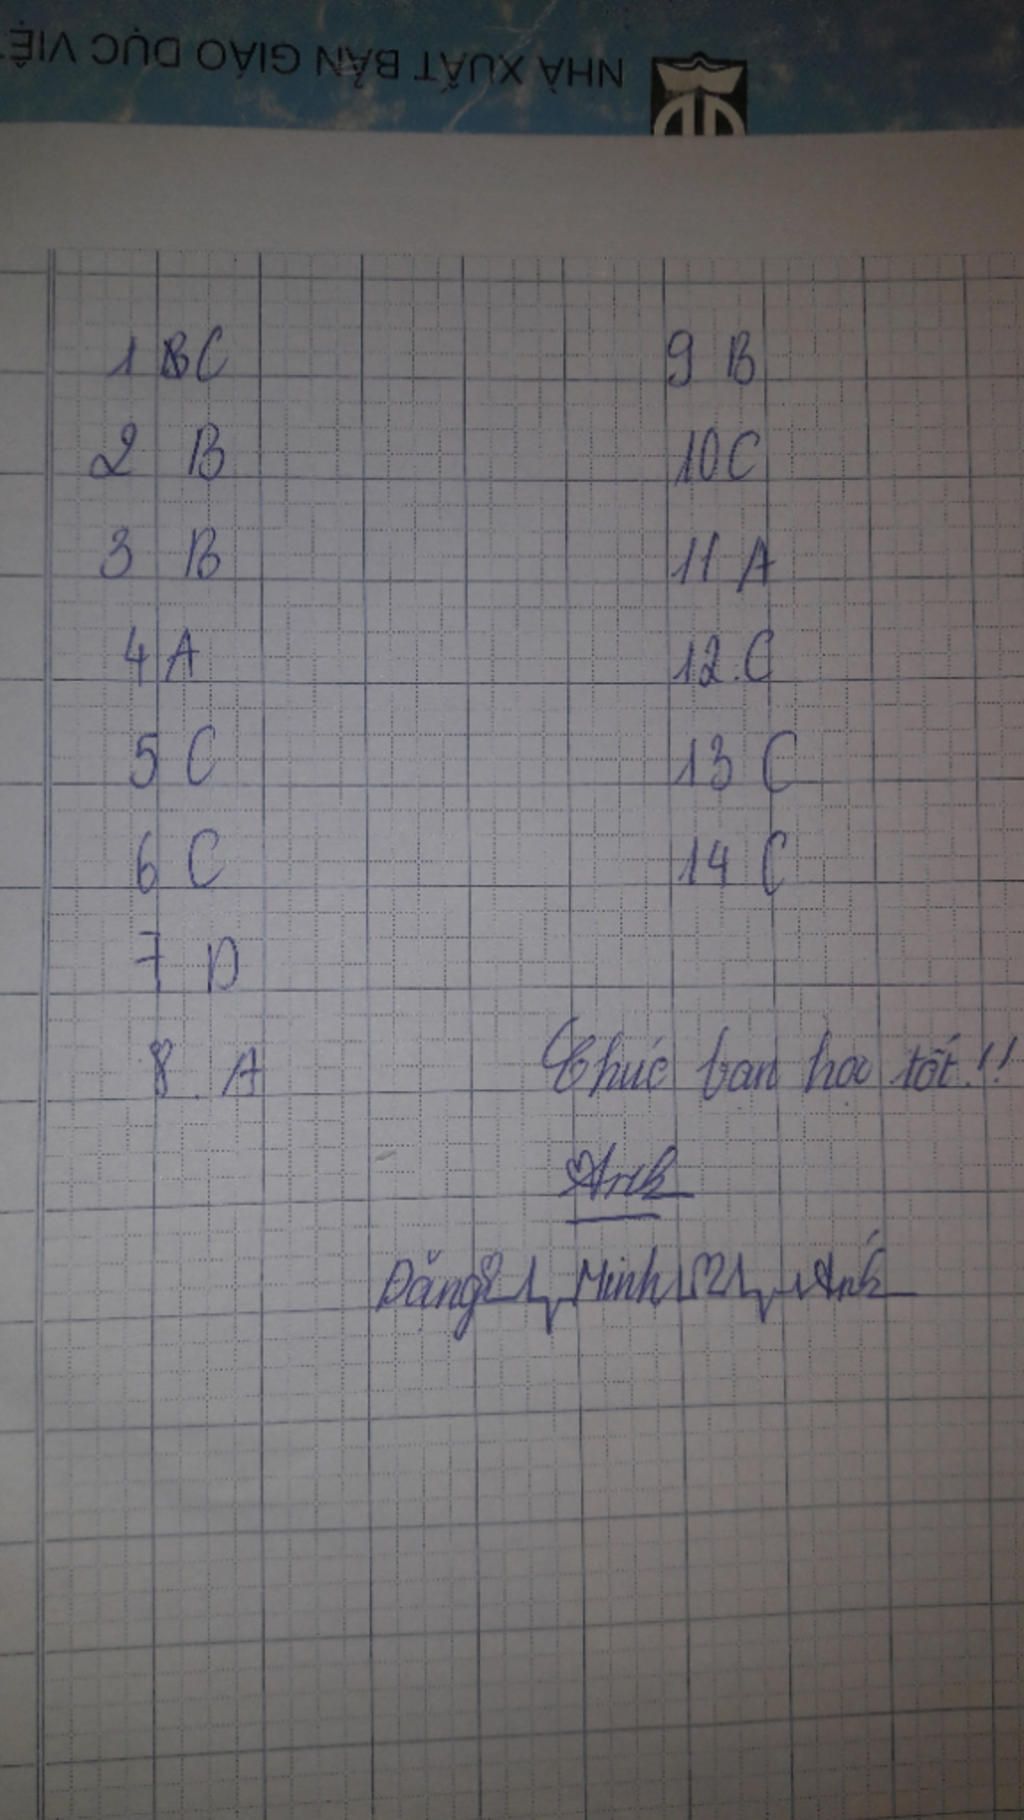 NHÀ XUẤT BẢN GIÁO DỤC VIỆ
1 C
2 B
3 B
4 A
5 C
6 C
7 D
8. A
9 B
10 C
11 A
12. C
13 C
14 C
Chúc bạn học tốt!!
Đăng Minh Anh